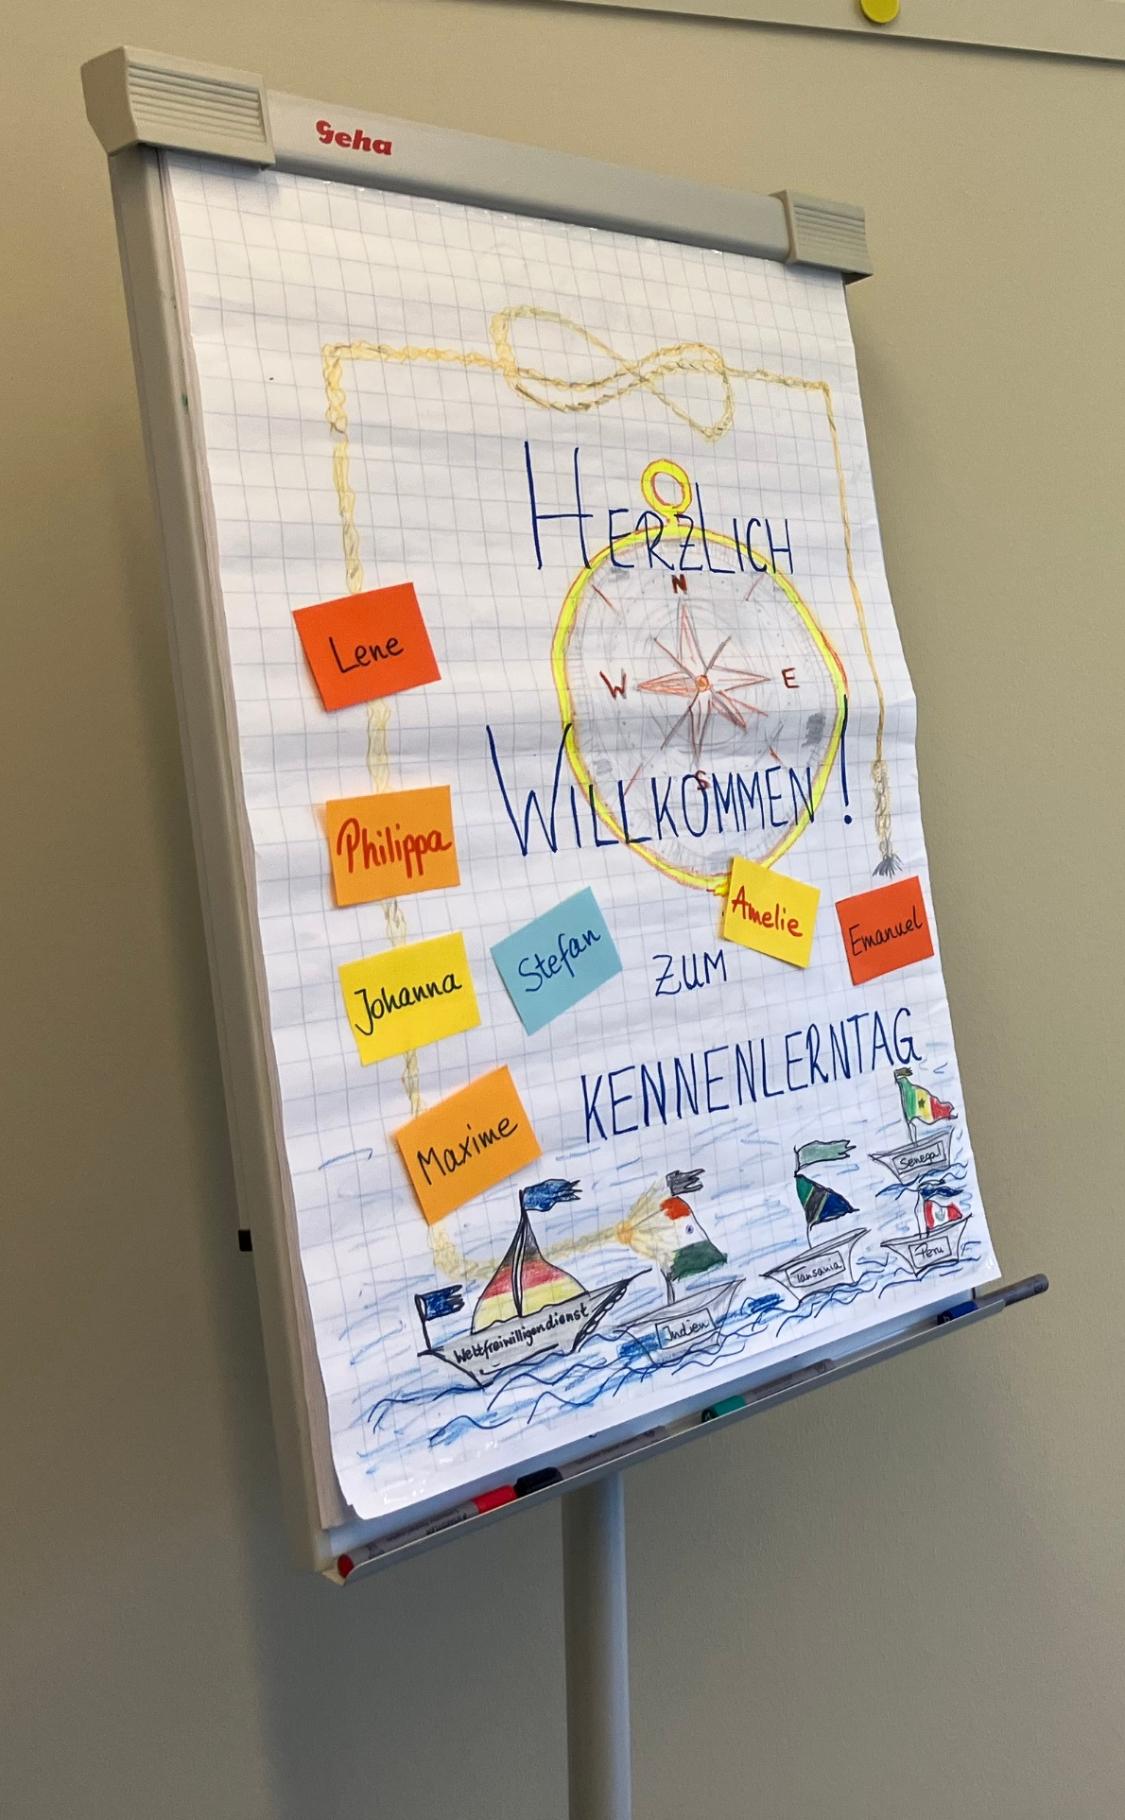 Geha
HERZLICH
N
W E
S
WILLKOMMEN!
ZUM
KENNENLERNTAG
Lene
Philippa
Johanna
Stefan
Amelie
Emanuel
Maxime
Weltfreiwilligendienst
Indien
Tansania
Senegal
Peru